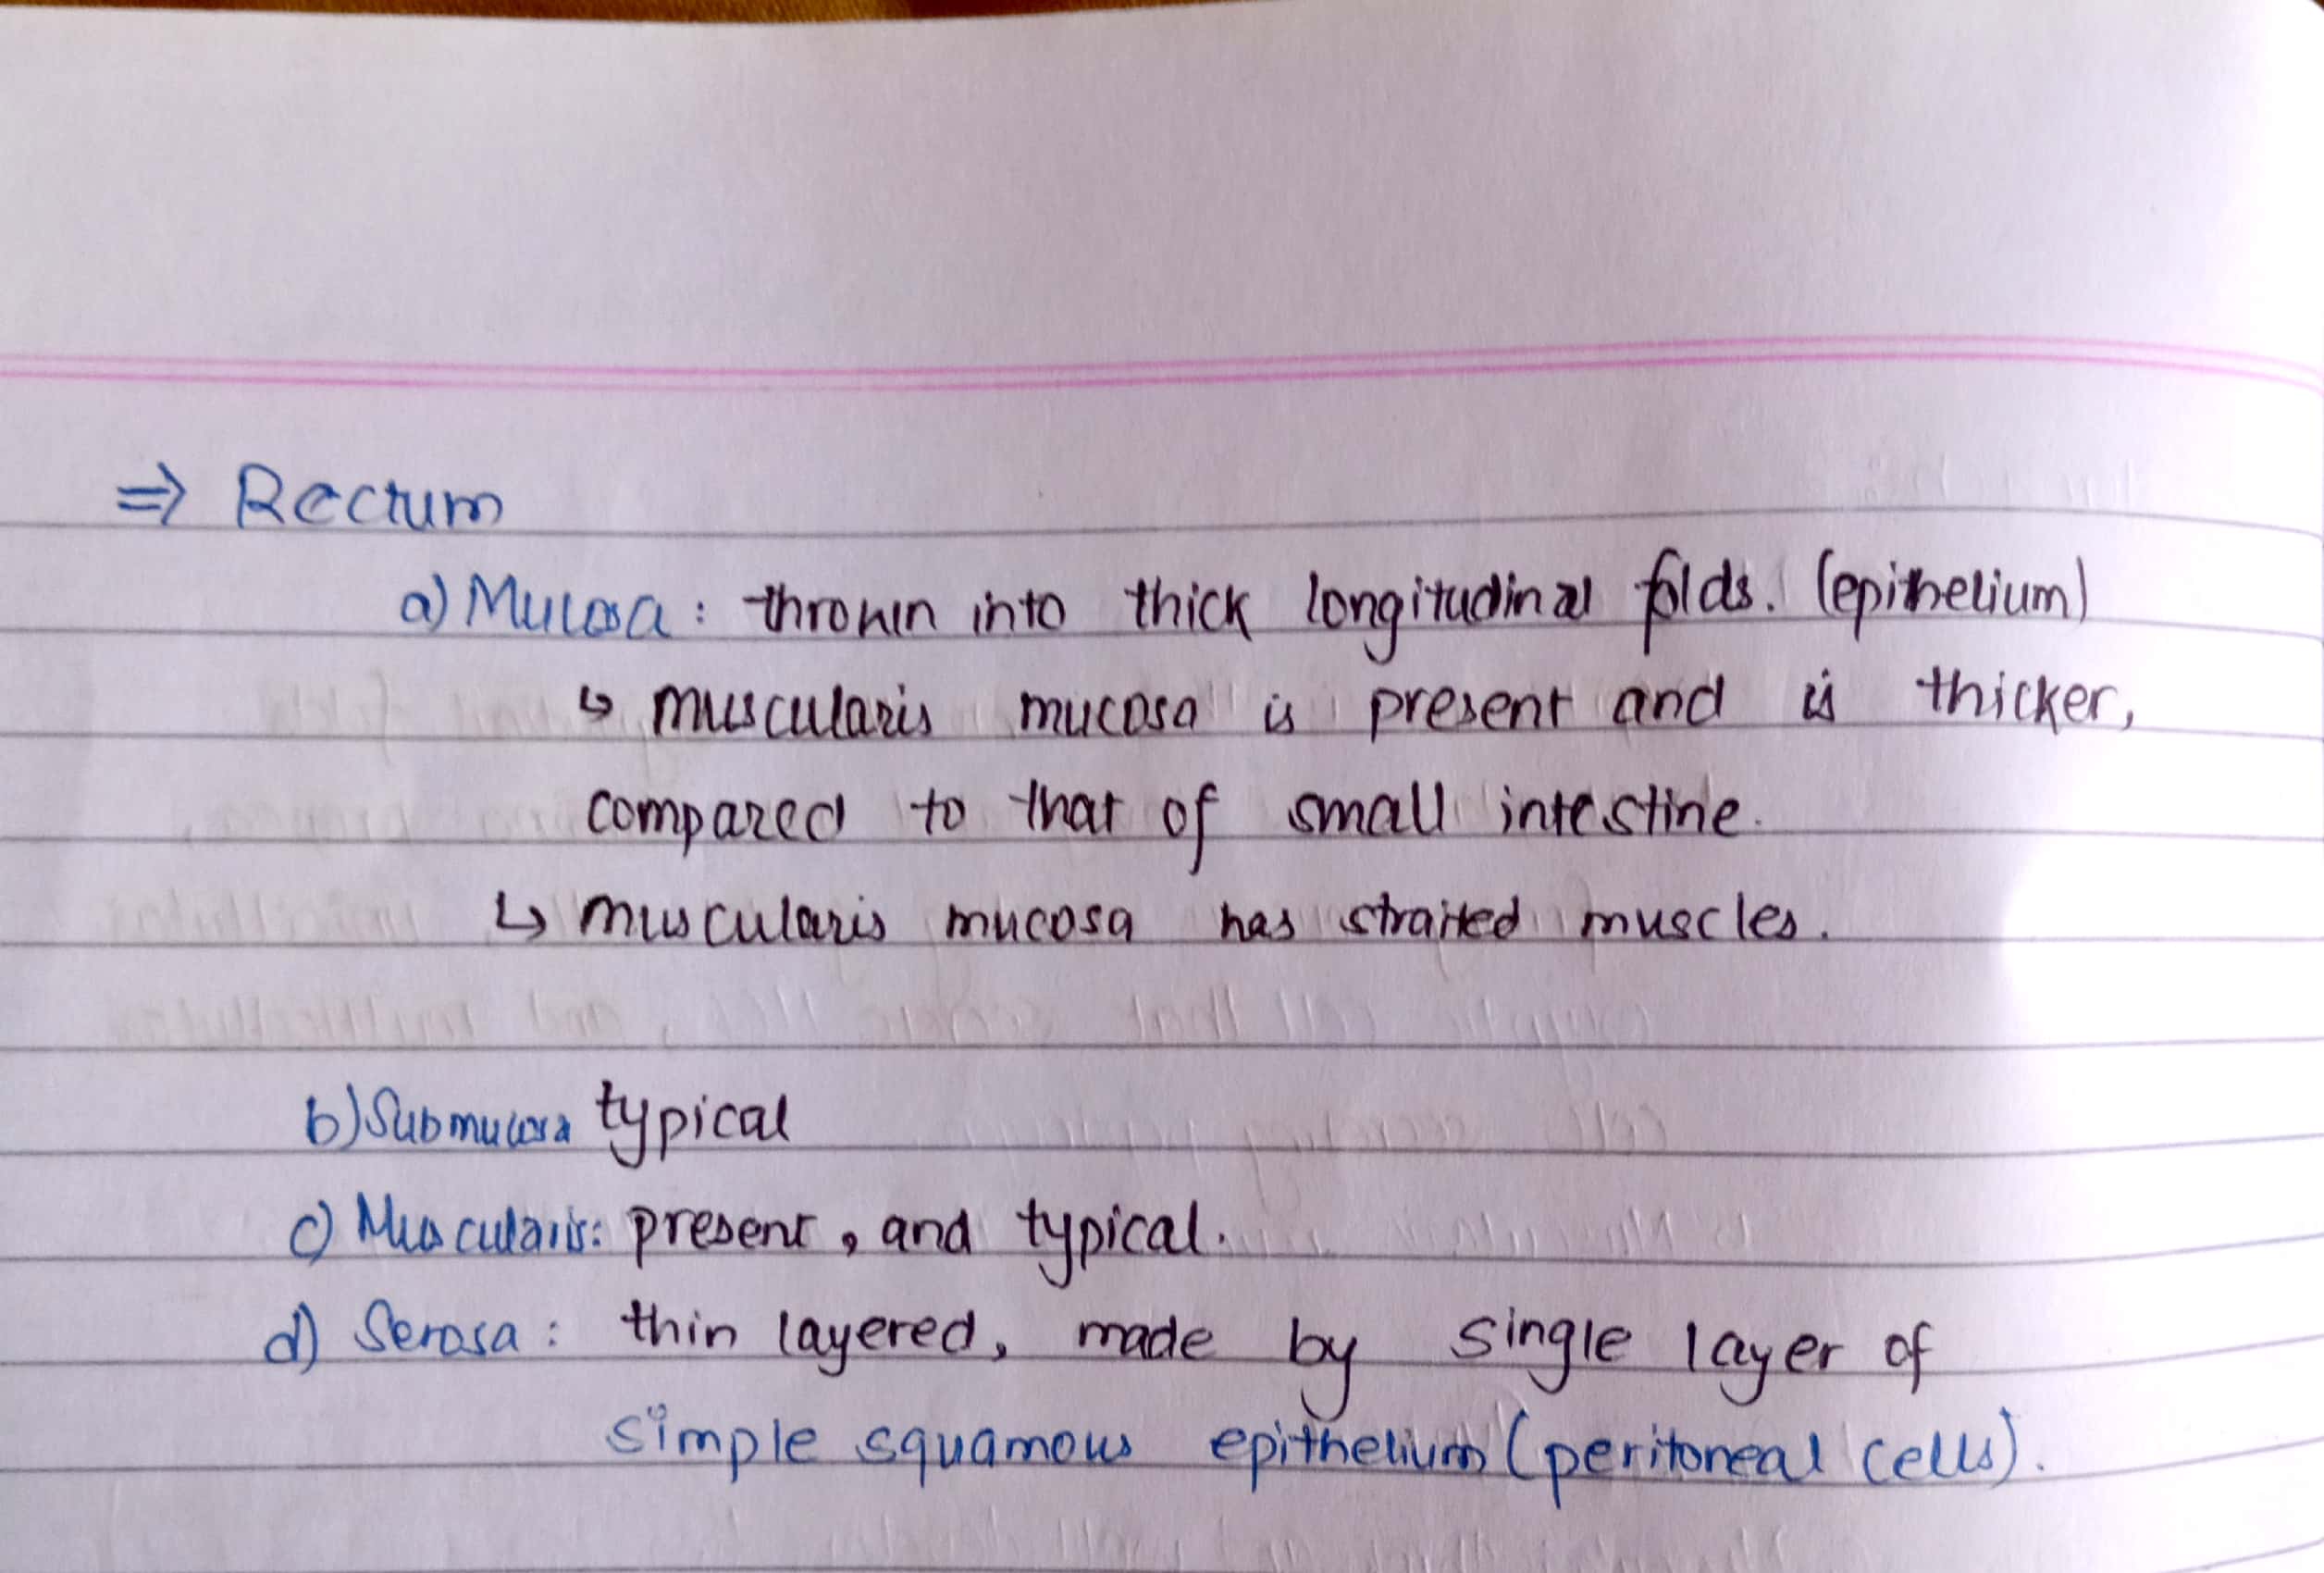 ⇒ Rectum
a) Mucosa : thrown into thick longitudinal folds. (epithelium)
↳ muscularis mucosa is present and is thicker,
compared to that of small intestine.
↳ muscularis mucosa has straited muscles.
b) Submucosa typical
c) Muscularis: present, and typical.
d) Serosa : thin layered, made by single layer of
simple squamous epithelium (peritoneal cells).